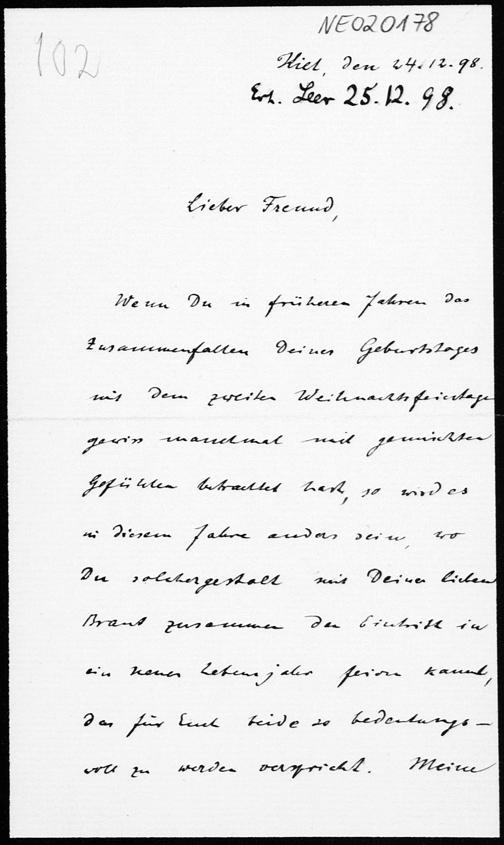 NE020178
102
Kiel, den 24.12.98.
Erh. Leer 25.12.98.
Lieber Freund,
Wenn Du in früheren Jahren das
Zusammenfallen Deines Geburtstages
mit dem zweiten Weihnachtsfeiertage
gewiss manchmal mit gemischten
Gefühlen betrachtet hast, so wird es
in diesem Jahre anders sein, wo
Du solchergestalt mit Deiner lieben
Braut zusammen den Eintritt in
ein neues Lebensjahr feiern kannst,
das für Euch beide so bedeutungs-
voll zu werden verspricht. Meine